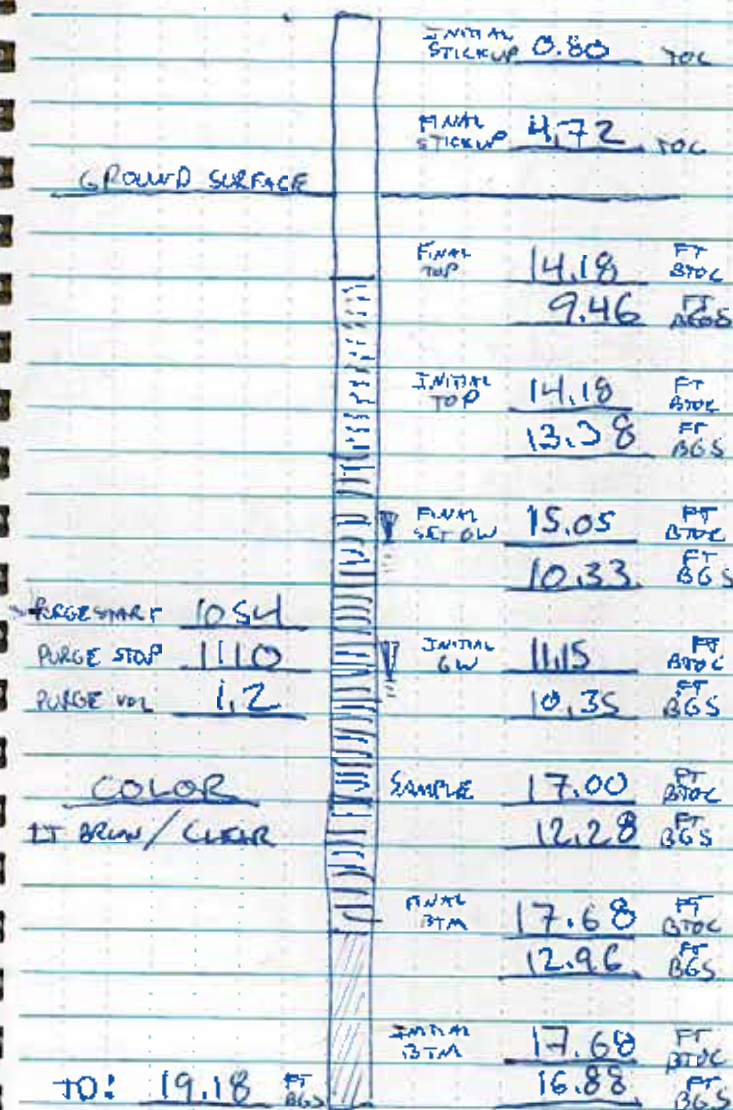 INITIAL STICKUP 0.80 TOC
FINAL STICKUP 4.72 TOC
GROUND SURFACE
FINAL TOP 14.18 FT BTOC
9.46 FT BGS
INITIAL TOP 14.18 FT BTOC
13.38 FT BGS
FINAL SET GW 15.05 FT BTOC
10.33 FT BGS
PURGE START 1054
PURGE STOP 1110
INITIAL GW 11.15 FT BTOC
PURGE VOL 1.2
10.35 FT BGS
COLOR
SAMPLE 17.00 FT BTOC
LT BRWN / CLEAR
12.28 FT BGS
FINAL BTM 17.68 FT BTOC
12.96 FT BGS
INITIAL BTM 17.68 FT BTOC
TD: 19.18 FT BGS
16.88 FT BGS